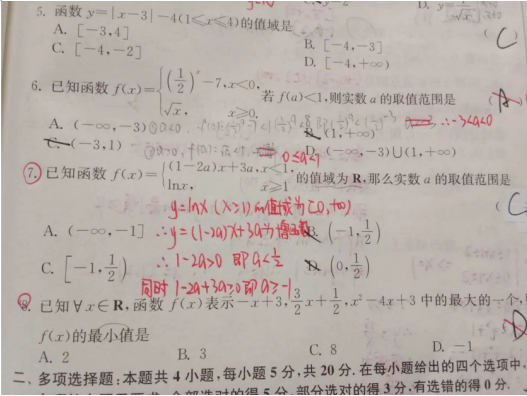 5. 函数 y=|x-3|-4(1≤x≤4)的值域是
(C)
A. [-3,4]
B. [-4,-3]
C. [-4,-2]
D. [-4,+∞)
6. 已知函数 f(x)={(1/2)^x-7,x<0, √x, x≥0, 若 f(a)<1,则实数 a 的取值范围是
A. (-∞,-3)
B. (1,+∞)
∴-3<a<0
C. (-3,1)
0≤a<1
D. (-∞,-3)∪(1,+∞)
7. 已知函数 f(x)={(1-2a)x+3a,x<1, lnx, x≥1 的值域为 R,那么实数 a 的取值范围是
(C
y=lnx(x≥1)的值域为[0,+∞)
A. (-∞,-1]
∴y=(1-2a)x+3a为增函数
B. (-1,1/2)
C. [-1,1/2)
∴1-2a>0 即 a<1/2
D. (0,1/2)
同时 1-2a+3a≥0 即 a≥-1
8. 已知∀x∈R,函数 f(x)表示-x+3,3/2x+1/2,x²-4x+3 中的最大的一个,
f(x)的最小值是
D
A. 2
B. 3
C. 8
D. -1
二、多项选择题:本题共 4 小题,每小题 5 分,共 20 分. 在每小题给出的四个选项中,
全部选对的得 5 分,部分选对的得 3 分,有选错的得 0 分.